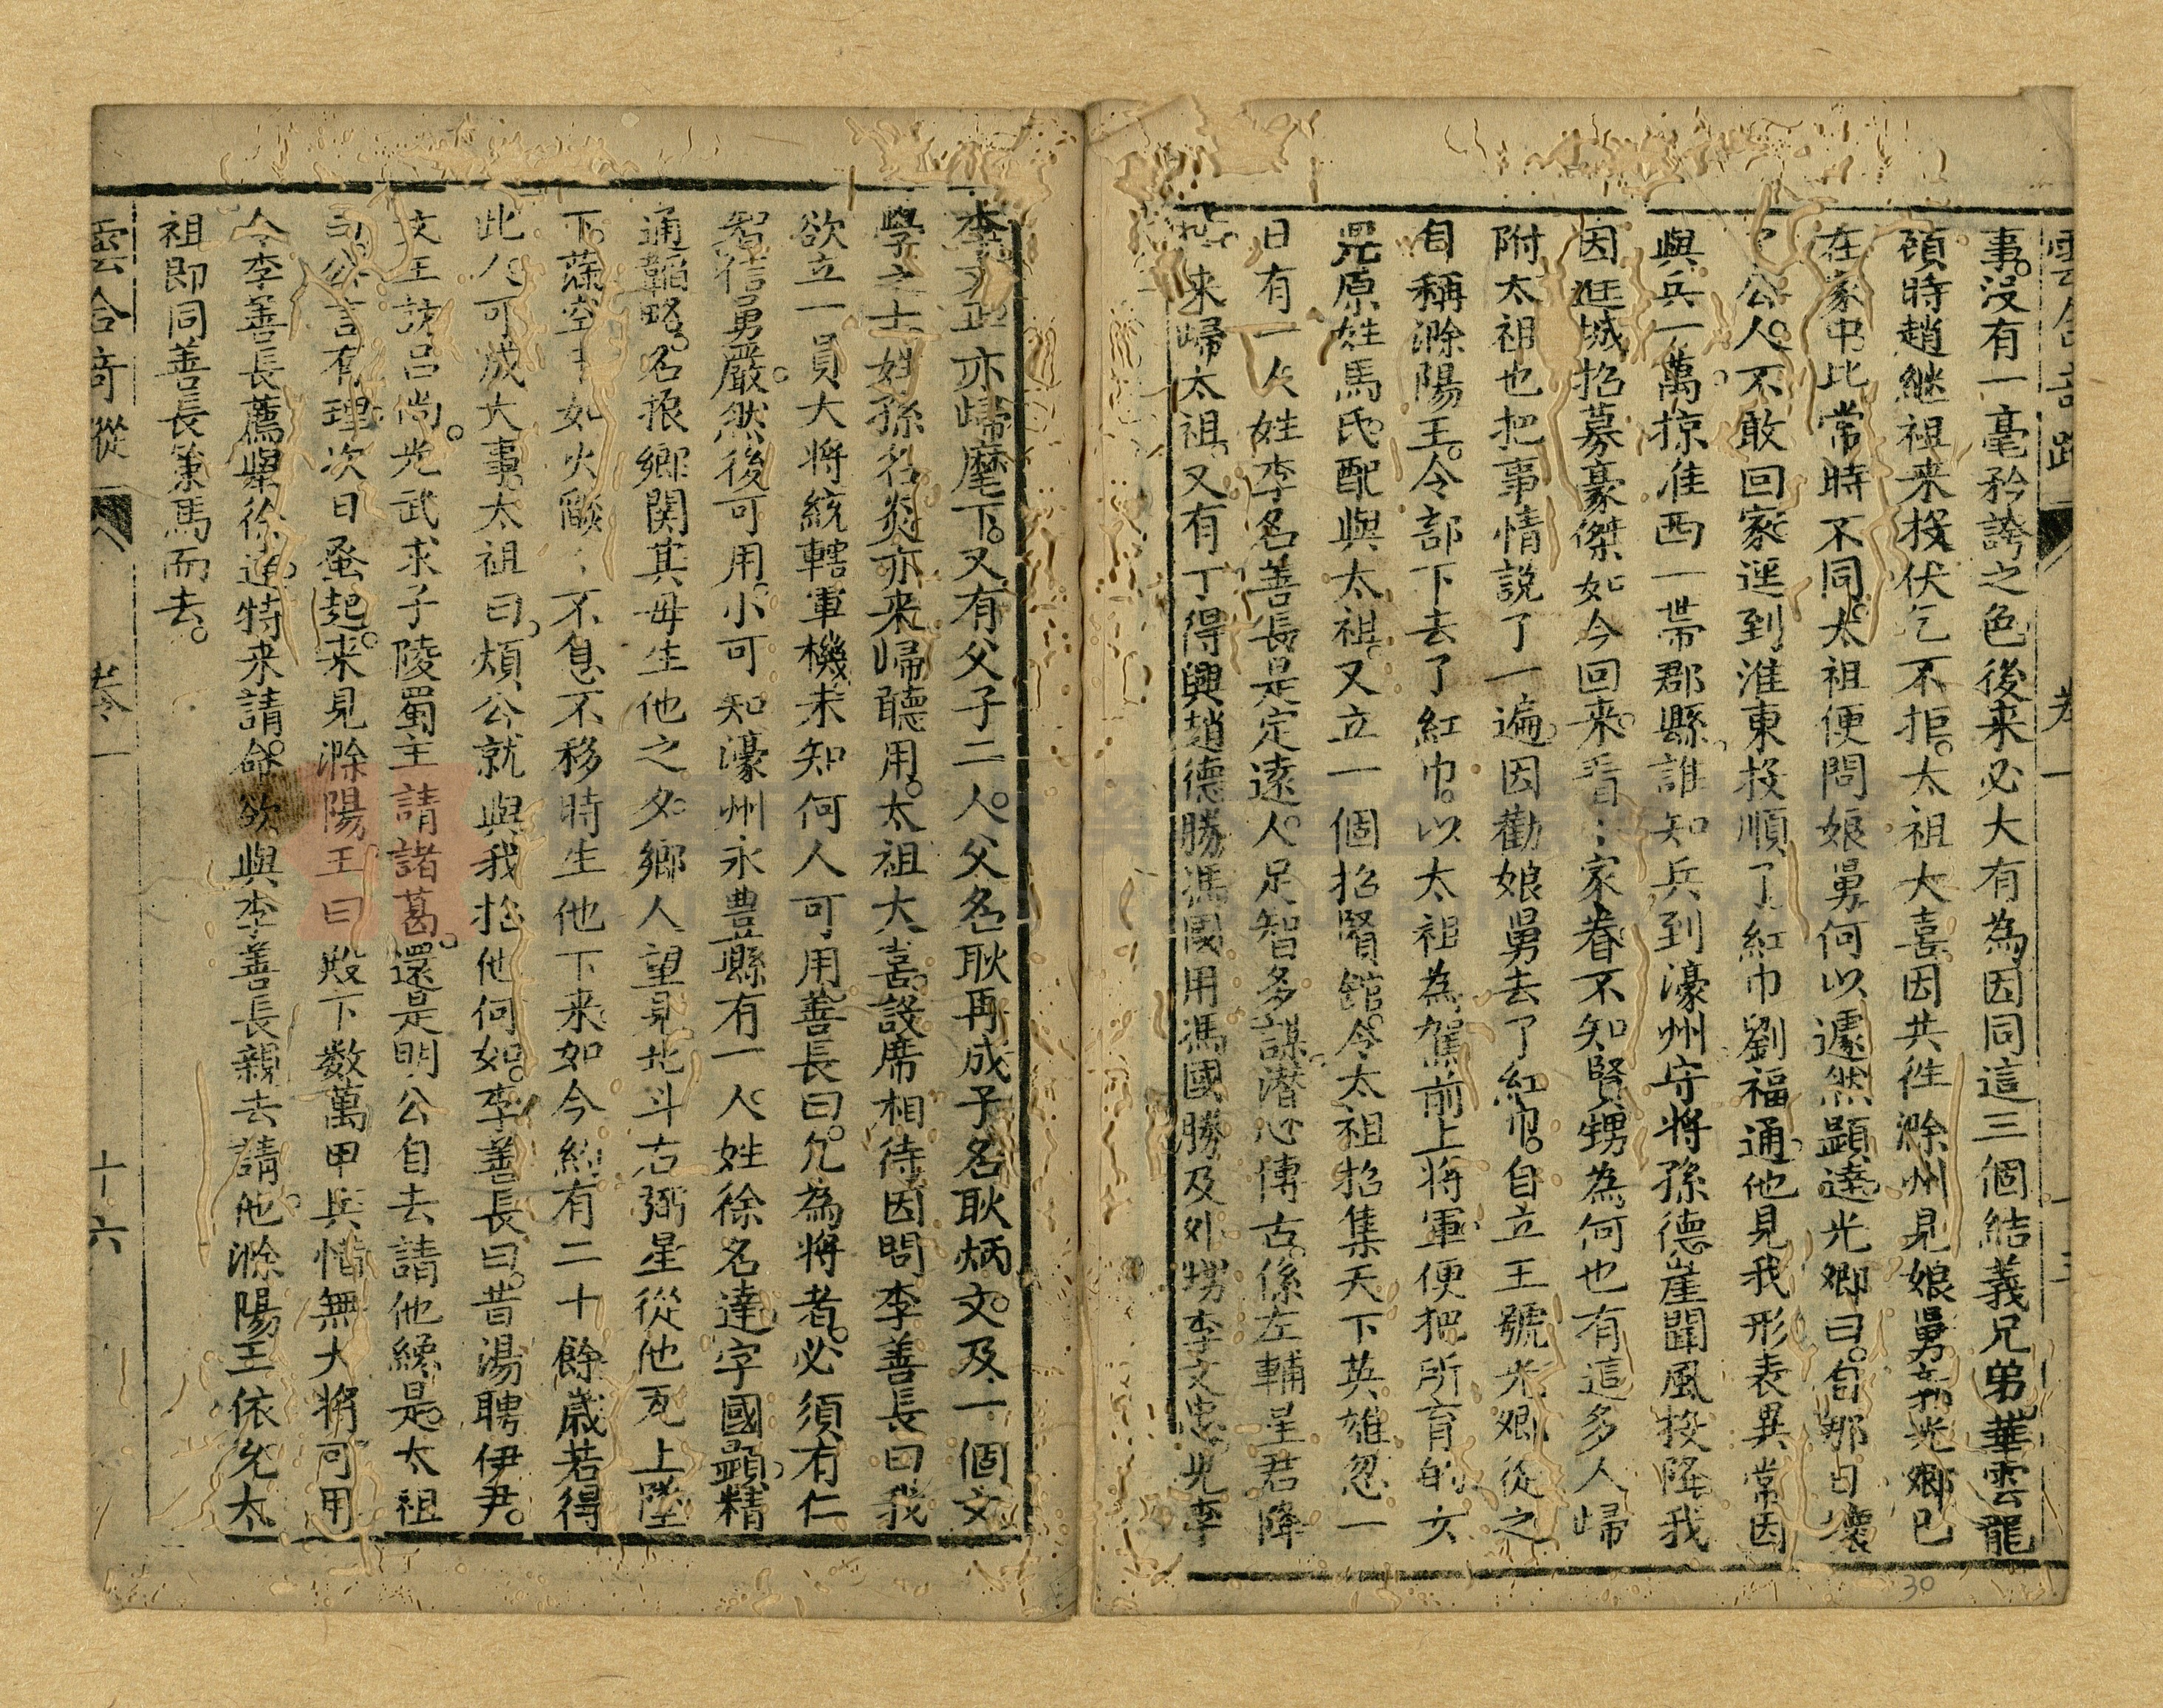 雲合奇蹤 卷一
事。沒有一毫矜誇之色後来必大有為因同這三個結義兄弟華雲龍
碩時趙継祖来投伏乞不拒。太祖大喜因共徃滁州見娘舅郭光卿巳
在家中比常時不同。太祖便問娘舅何以遽然顕達光卿曰。自那日壞
了公人。不敢回家逕到淮東投順了紅巾劉福通。他見我形表異常因
與兵一萬掠淮西一帯郡縣。誰知兵到濠州守将孫德崖聞風投降我
因進城招募豪傑如今回来看〻家眷不知賢甥為何也有這多人歸
附太祖也把事情說了一遍。因勸娘舅去了紅巾。自立王號光卿從之
自稱滁陽王。令部下去了紅巾。以太祖為駕前上将軍便把所育的女
兒原姓馬氏。配與太祖。又立一個招賢舘。令太祖招集天下英雄忽一
日有一人姓李名善長是定遠人。足智多謀。潜心傳古。係左輔星君降
来歸太祖。又有丁得興趙德勝馮國用馮國勝及外甥李文忠。兄李
李文正亦歸麾下。又有父子二人。父名耿再成子名耿炳文。及一個文
學之士姓孫名炎亦来歸聽用。太祖大喜。設席相待因問李善長曰我
欲立一員大将統轄軍機未知何人可用善長曰。凢為将者。必須有仁
智信勇嚴。然後可用。小可知濠州永豊縣有一人。姓徐名達。字國顕。精
通韜略。名振鄉関其毋生他之夕。鄉人望見北斗右弼星從他瓦上墜
下。滿空中如火燄〻不息不移時生他下来。如今約有二十餘歲若得
此人可成大事。太祖曰。煩公就與我招他何如。李善長曰。昔湯聘伊尹。
文王訪吕尚。光武求子陵蜀主請諸葛。還是明公自去請他纔是。太祖
曰公言有理。次日蚤起。来見滁陽王曰殿下数萬甲兵惜無大将可用
今李善長薦舉徐達。特来請命。欲與李善長親去請他。滁陽王依允太
祖即同善長策馬而去。
雲合奇蹤 卷一 十六